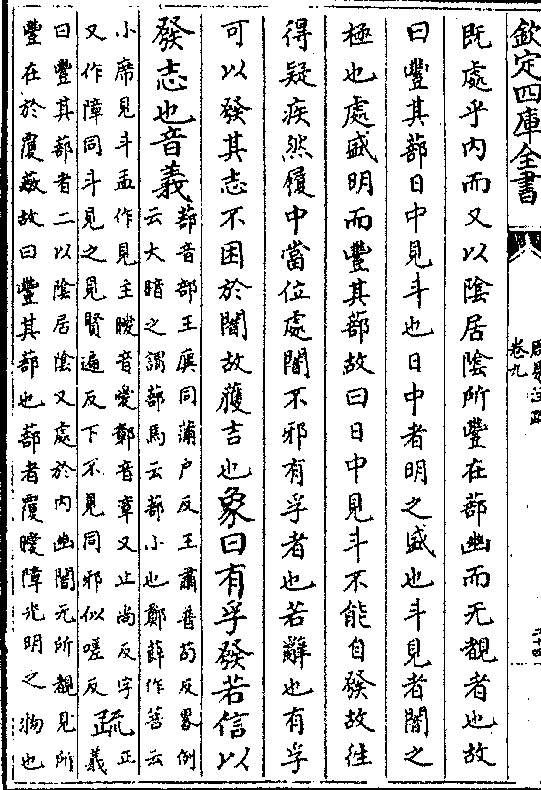 欽定四庫全書
卷九
既處乎内而又以陰居陰所豐在蔀幽而无覩者也故
曰豐其蔀日中見斗也日中者明之盛也斗見者闇之
極也處盛明而豐其蔀故曰日中見斗不能自發故往
得疑疾然履中當位處闇不邪有孚者也若辭也有孚
可以發其志不困於闇故獲吉也象曰有孚發若信以
發志也音義
蔀音部王廙同蒲户反王肅普苟反畧例
云大暗之謂蔀馬云蔀小也鄭薛作菩云
小席見斗孟作見主曖音愛鄭音章又止尚反字
又作障同斗見之見賢遍反下不見同邪似嗟反
疏
正
義
曰豐其蔀者二以陰居陰又處於内幽闇无所覩見所
豐在於覆蔽故曰豐其蔀也蔀者覆曖障光明之物也